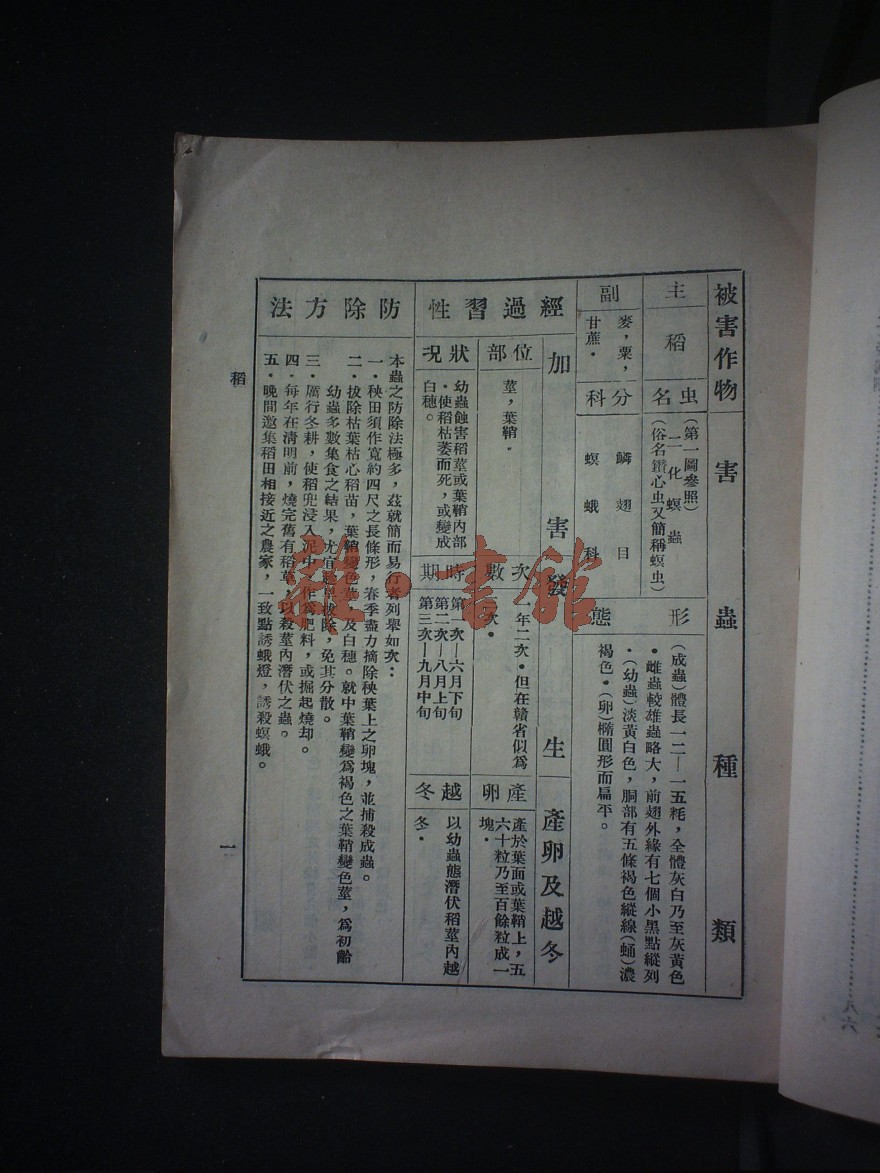 被害作物
害蟲種類
主
稻
副
麥,粟,
甘蔗。
虫名
(第一圖參照)
二化螟蟲
(俗名鑽心虫又簡稱螟虫)
分科
鱗翅目
螟蛾科
形態
(成蟲)體長一二—一五粍,全體灰白乃至灰黃色
。雌蟲較雄蟲略大,前翅外緣有七個小黑點縱列
。(幼蟲)淡黃白色,胴部有五條褐色縱線(蛹)濃
褐色。(卵)橢圓形而扁平。
經過習性
加害
發生
產卵及越冬
部位
莖,葉鞘。
狀況
幼蟲蝕害稻莖或葉鞘內部
。使稻枯萎而死,或變成
白穗。
次數
一年二次。但在贛省似為
次。
時期
第一次—六月下旬
第二次—八月上旬
第三次—九月中旬
產卵
產於葉面或葉鞘上,五
六十粒乃至百餘粒成一
塊。
越冬
以幼蟲態潛伏稻莖內越
冬。
防除方法
本蟲之防除法極多,茲就簡而易行者列舉如次:
一。秧田須作寬約四尺之長條形,春季盡力摘除秧葉上之卵塊,並捕殺成蟲。
二。拔除枯葉枯心稻苗,葉鞘變色莖,及白穗。就中葉鞘變為褐色之葉鞘變色莖,為初齡
幼蟲多數集食之結果,尤宜拔除,免其分散。
三。厲行冬耕,使稻兜浸入泥中,作為肥料,或掘起燒却。
四。每年在清明前,燒完舊有稻草,以殺莖內潛伏之蟲。
五。晚間邀集稻田相接近之農家,一致點誘蛾燈,誘殺螟蛾。
稻
一
八六
雜·書館